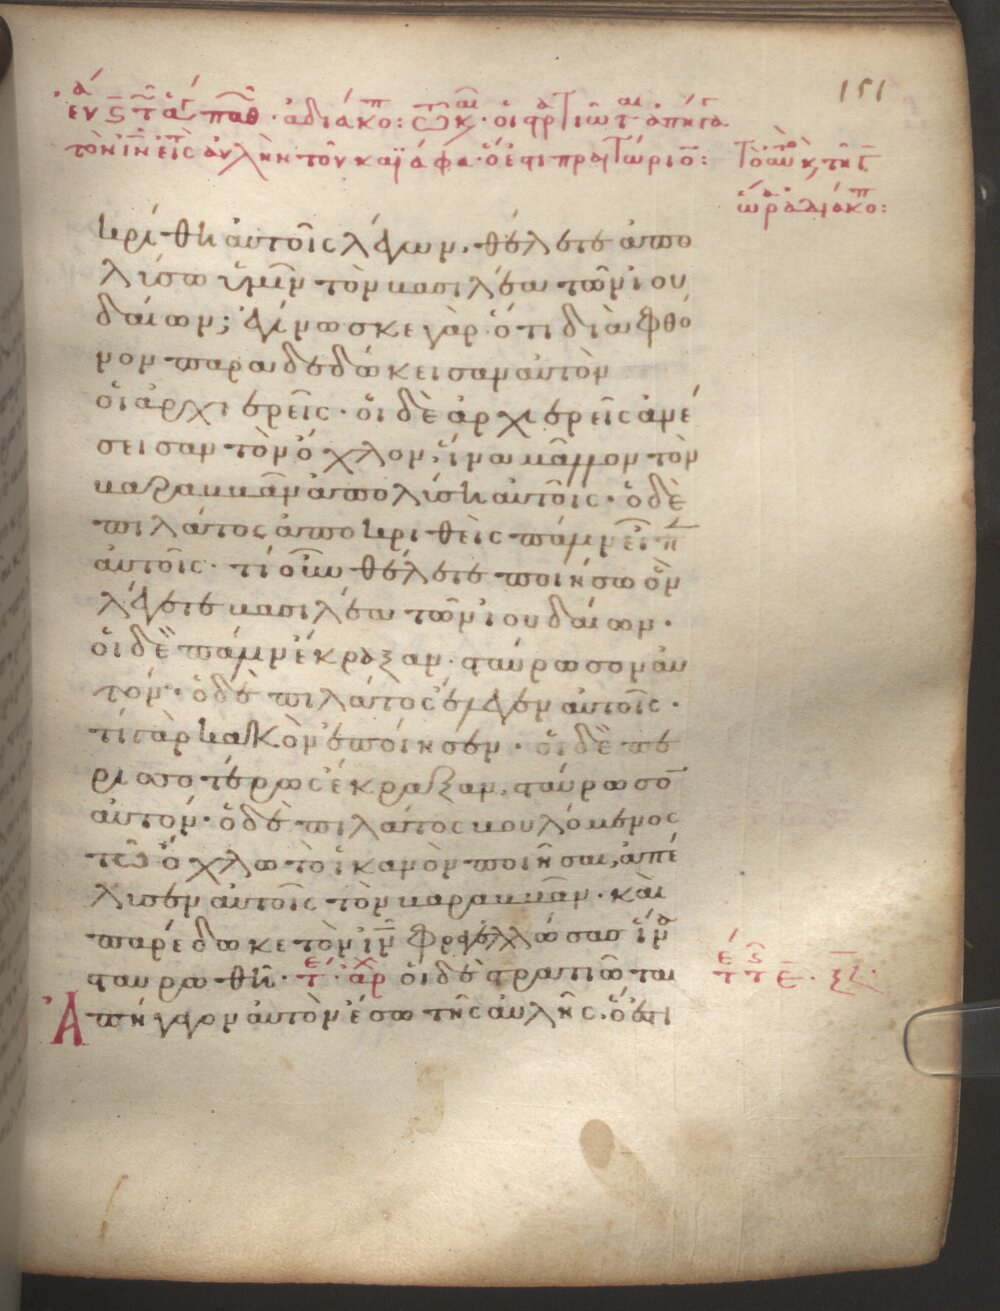 151
τὸν ἰν εἰς αὐλὴν τοῦ καϊάφα· ὅ ἐστι πραιτώριο̅:
κρίθη αὐτοῖς λέγων· θέλετε ἀπο
λύσω ὑμῖν τὸν βασιλέα τῶν ἰου
δαίων; ἐγίνωσκε γὰρ ὅτι διὰ φθό
νον παραδεδώκεισαν αὐτὸν
οἱ ἀρχιερεῖς· οἱ δὲ ἀρχιερεῖς ἀνέ
σεισαν τὸν ὄχλον, ἵνα μᾶλλον τὸν
βαραββᾶν ἀπολύση αὐτοῖς· ὁ δὲ
πιλάτος ἀποκριθεὶς πάλιν εἶπ
αὐτοῖς· τί οὖν θέλετε ποιήσω ὃν
λέγετε βασιλέα τῶν ἰουδαίων·
οἱ δὲ πάλιν ἔκραξαν· σταύρωσον αὐ
τόν· ὁ δὲ πιλάτος ἔλεγεν αὐτοῖς·
τί γὰρ κακὸν ἐποίησεν· οἱ δὲ πε
ρισσοτέρως ἔκραξαν, σταύρωσο̅
αὐτόν· ὁ δὲ πιλάτος βουλόμενος
τῶ ὄχλω τὸ ἱκανὸν ποιῆσαι, ἀπέ
λυσεν αὐτοῖς τὸν βαραββᾶν· καὶ
παρέδωκε τὸν ἰν φραγελλώσας ἵνα
σταυρωθῆ· τε· ἀρχ οἱ δὲ στρατιῶται
Ἀπήγαγον αὐτὸν ἔσω τῆς αὐλῆς· ὅ ἐστι